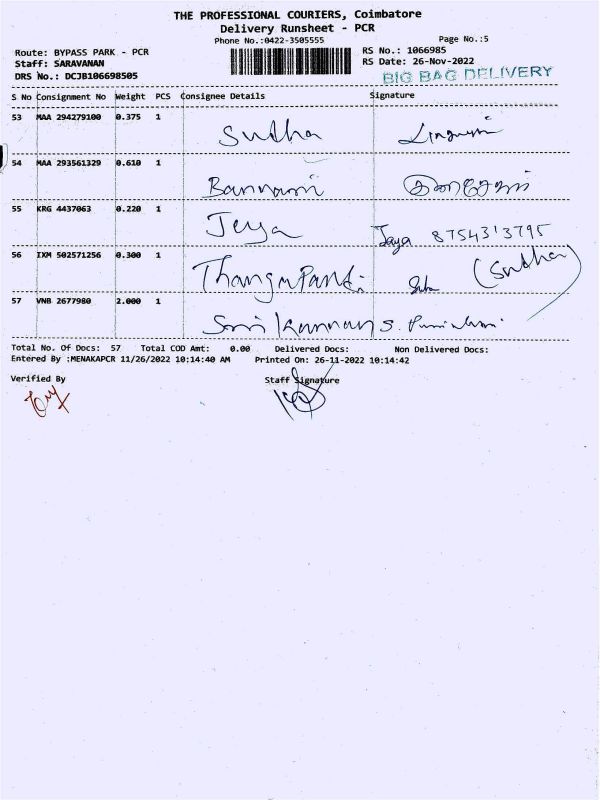 THE PROFESSIONAL COURIERS, Coimbatore
Delivery Runsheet - PCR
Phone No.:0422-3505555 Page No.:5
Route: BYPASS PARK - PCR RS No.: 1066985
Staff: SARAVANAN RS Date: 26-Nov-2022
DRS No.: DCJB106698505 BIG BAG DELIVERY
S No Consignment No Weight PCS Consignee Details Signature
53 MAA 294279100 0.375 1 Sudha
54 MAA 293561329 0.610 1 Bannami
55 KRG 4437063 0.220 1 Jeya Jaya 8754313795
56 IXM 502571256 0.300 1 ThangaPandi (Sudha)
57 VNB 2677980 2.000 1 Sri Kannan S.
Total No. Of Docs: 57 Total COD Amt: 0.00 Delivered Docs: Non Delivered Docs:
Entered By :MENAKAPCR 11/26/2022 10:14:40 AM Printed On: 26-11-2022 10:14:42
Verified By Staff Signature